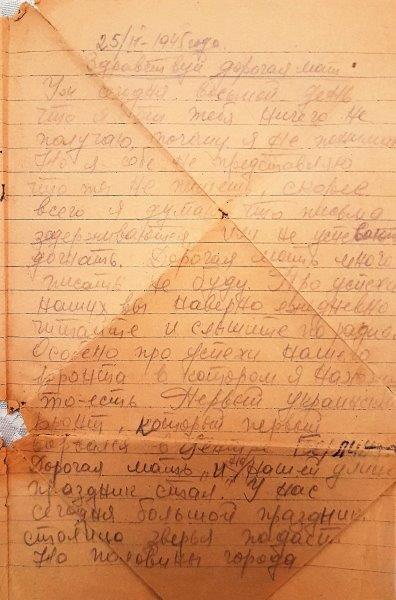 25/IV-1945 года.
Здравствуй дорогая мать
Уж сегодня восьмой день
что я от тебя ничего не
получаю, почему я не понимаю
Но я себе не представляю
что ты не пишешь, скорее
всего я думаю, что письма
задерживаются или не успевают
догнать. Дорогая мать много
писать не буду. Про успехи
наших вы наверно ежедневно
читаете и слышите по радио.
Особено про успехи нашего
фронта в котором я нахожу
то-есть Первый украински
фронт, который первый
ворвался в центр
Дорогая мать „И на нашей улице
праздник стал". У нас
сегодня большой праздник
столица зверья падаст
На половины города